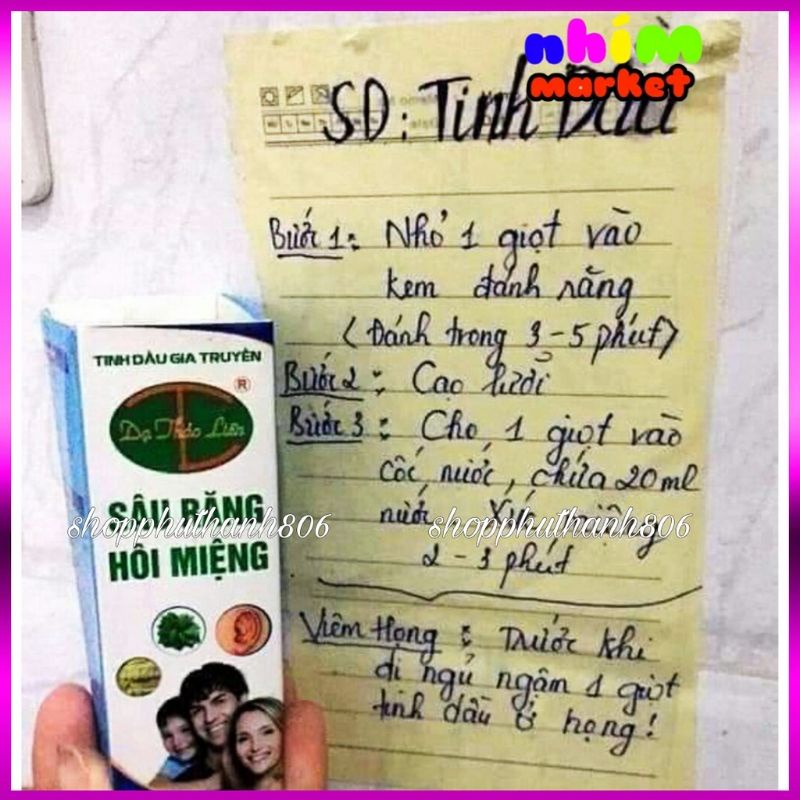 nhím
market
SD: Tinh Dầu
Bước 1: Nhỏ 1 giọt vào
kem đánh răng
(Đánh trong 3-5 phút)
Bước 2: Cạo lưỡi
Bước 3: Cho 1 giọt vào
cốc nước, chứa 20ml
nước, miệng
2-3 phút
Viêm Họng: Trước khi
đi ngủ ngậm 1 giọt
tinh dầu ở họng!
TINH DẦU GIA TRUYỀN
Dạ Thảo Liên
®
SÂU RĂNG
HÔI MIỆNG
shopphuthanh806
shopphuthanh806